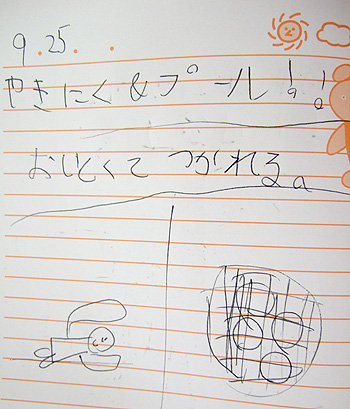 9.25..
やきにく&プール!!
おいしくて つかれる。